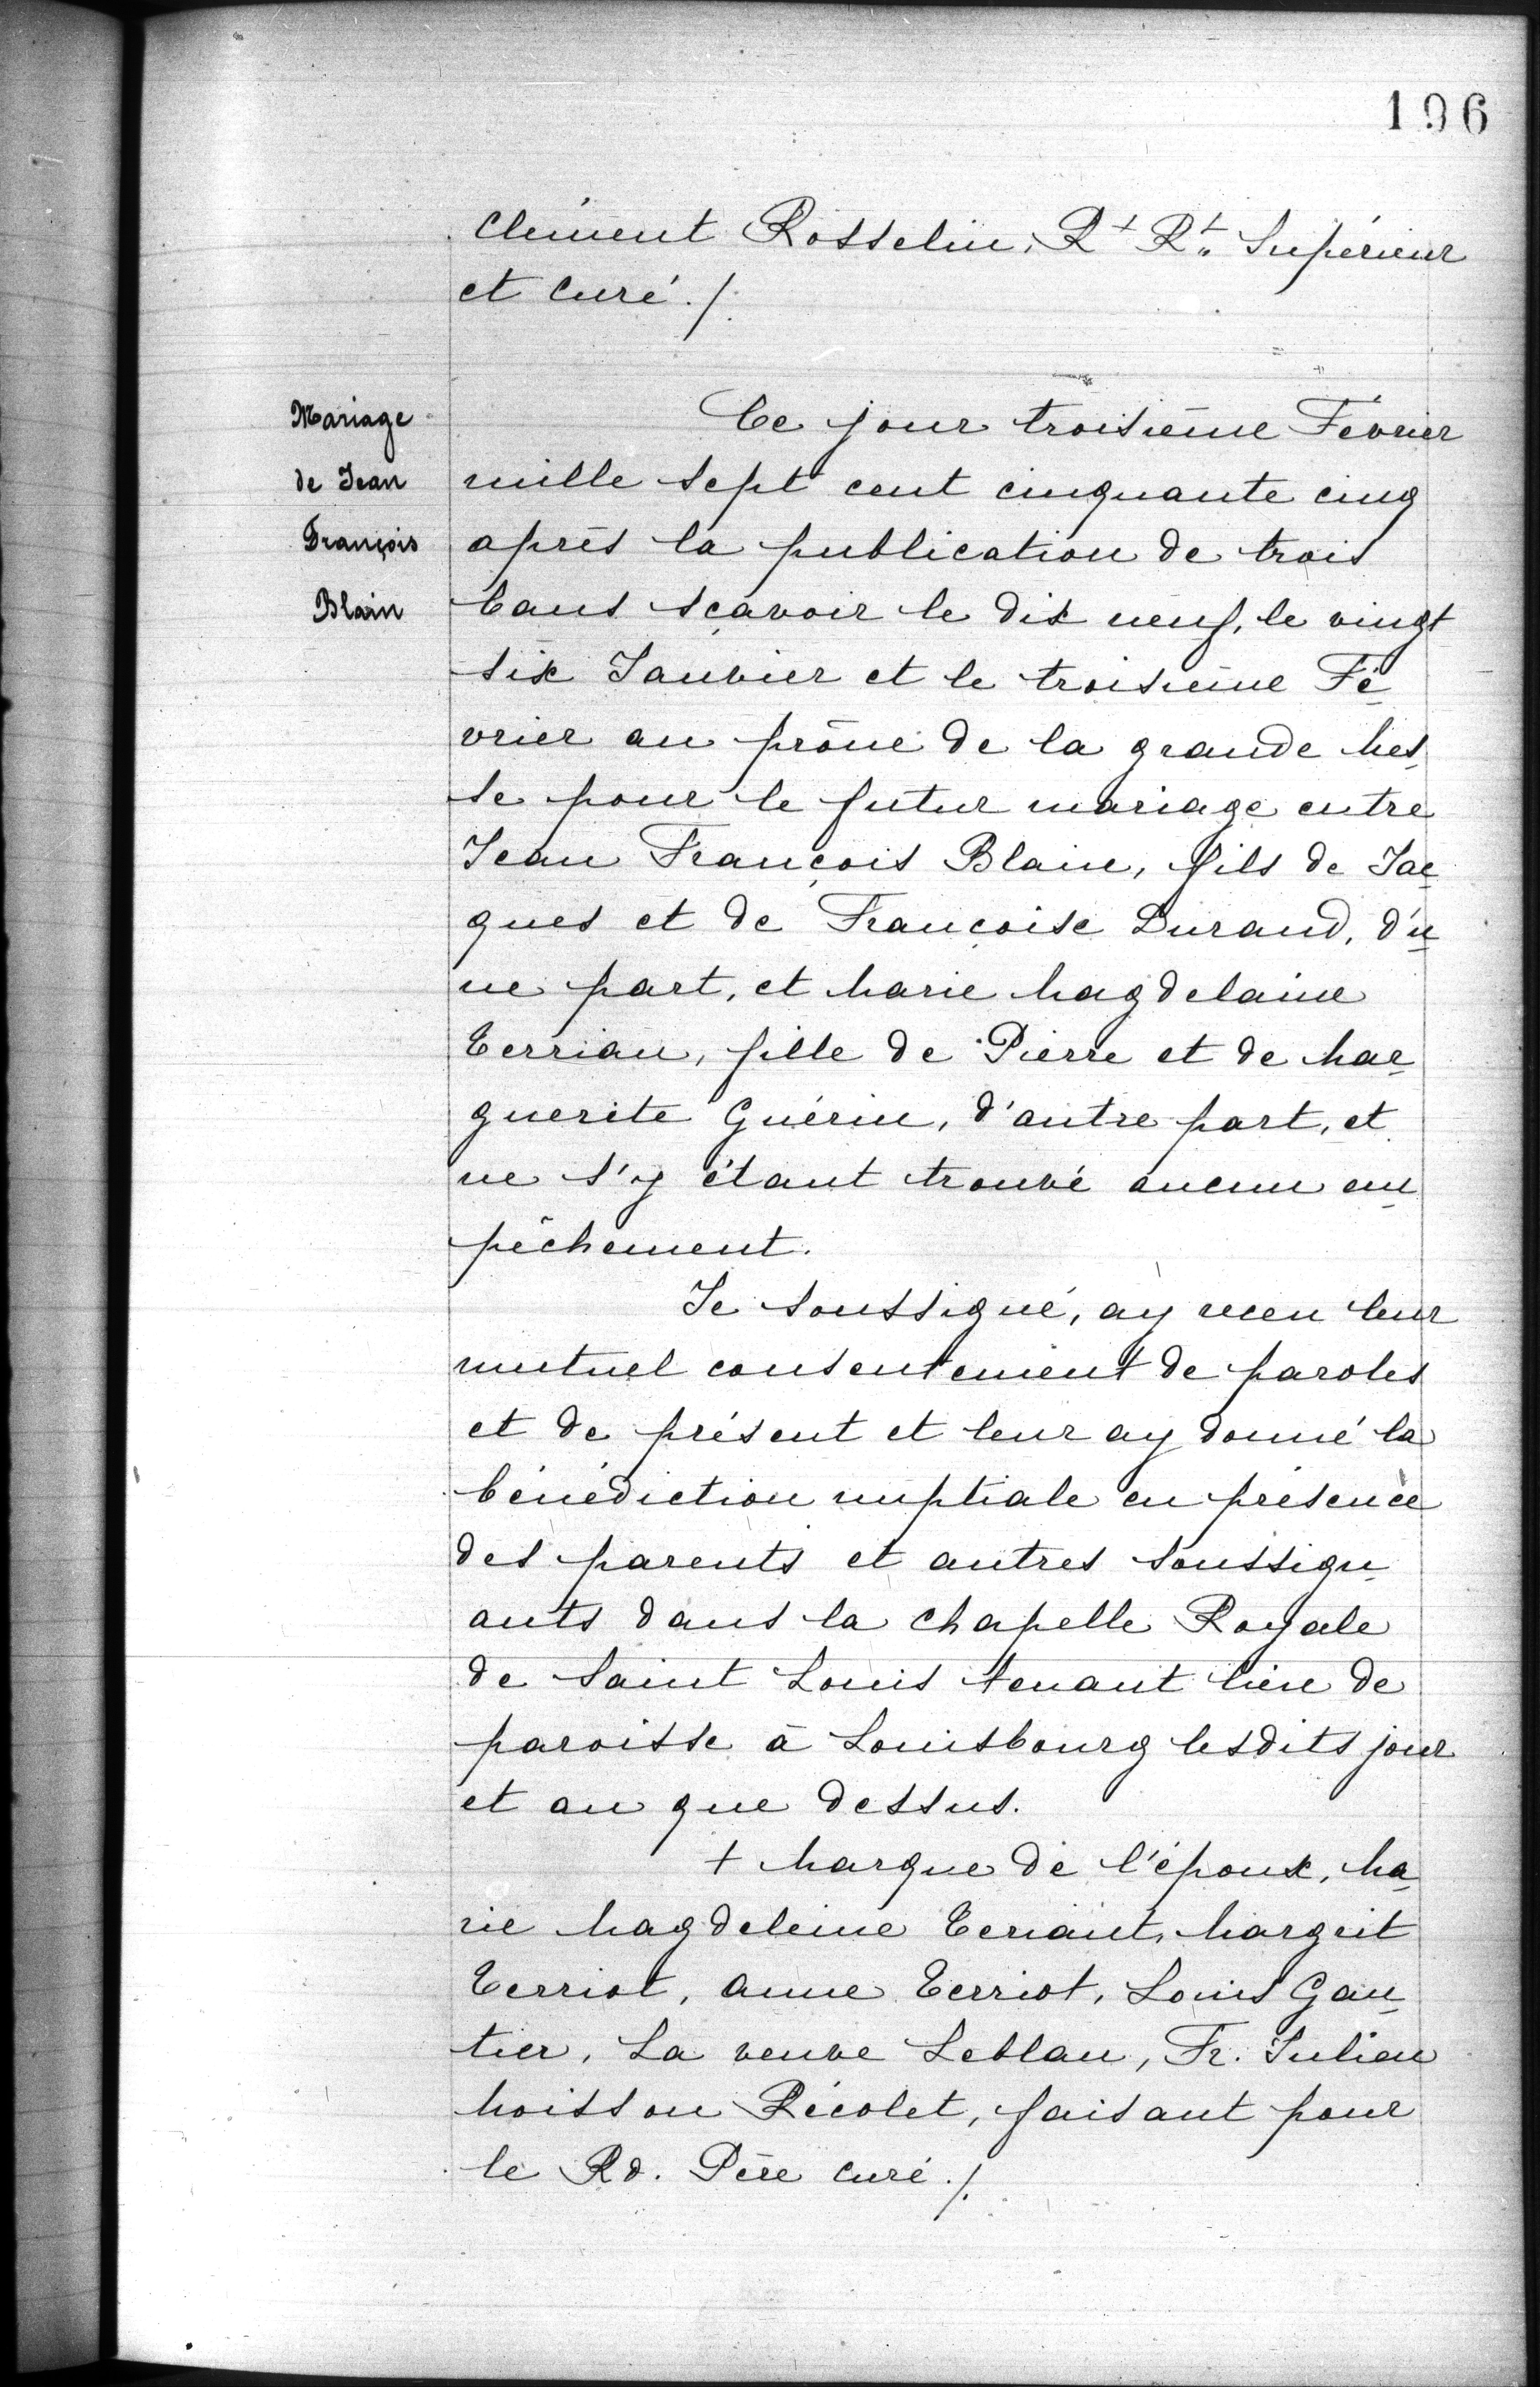 196
Clément Rosselin, Rt Rt. Supérieur
et Curé ./.
Mariage
de Jean
François
Blain
Ce jour troisième Février
mille sept cent cinquante cinq
après la publication de trois
bans sçavoir le dix neuf, le vingt
six Janvier et le troisième Fé-
vrier au prône de la grande Mes-
se pour le futur mariage entre
Jean François Blain, fils de Jac-
ques et de Françoise Durand, d'u-
ne part, et Marie Magdelaine
Terriau, fille de Pierre et de Mar-
guerite Guérin, d'autre part, et
ne s'y étant trouvé aucun em-
pêchement.
Je soussigné, ay receu leur
mutuel consentement de paroles
et de présent et leur ay donné la
bénédiction nuptiale en présence
des parents et autres soussign-
ants dans la chapelle Royale
de Saint Louis tenant lieu de
paroisse à Louisbourg lesdits jour
et an que dessus.
+ Marque de l'époux, Ma-
rie Magdeleine Teriaut, Margrit
Terriot, Anne Terriot, Louis Gau-
tier, La veuve Leblan, Fr. Julien
Moisson Récolet, faisant pour
le Rd. Père Curé ./.